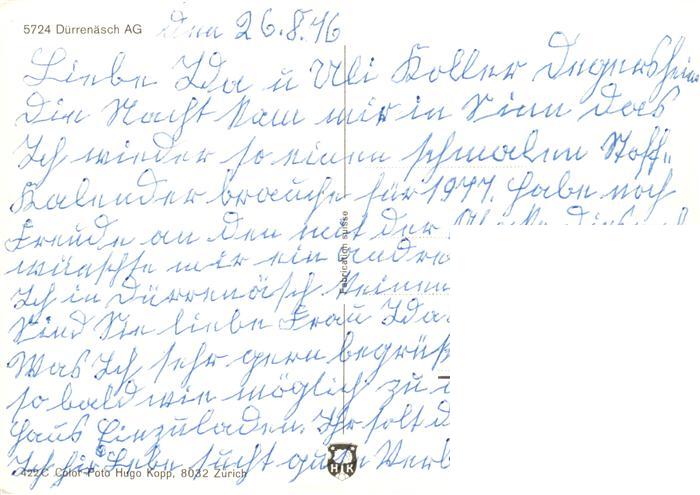 5724 Dürrenäsch AG
Den 26.8.76
Liebe Ida u Uli Koller Degersheim
Die Nacht kam mir in Sinn das
Ich wieder so einen schmalen Stoff=
Kalender brauche für 1977. habe noch
Freude an den mit der
wünschte mir ein andre
Ich in Dürrenäsch keinen
Sind Sie liebe Frau Ida
Was Ich sehr gern begrüß
so bald wie möglich zu
Haus Einzuladen. Ihr solt d
Ich für Liebe sucht gute Verb
Fabrication suisse
422C Color-Foto Hugo Kopp, 8032 Zürich
HK